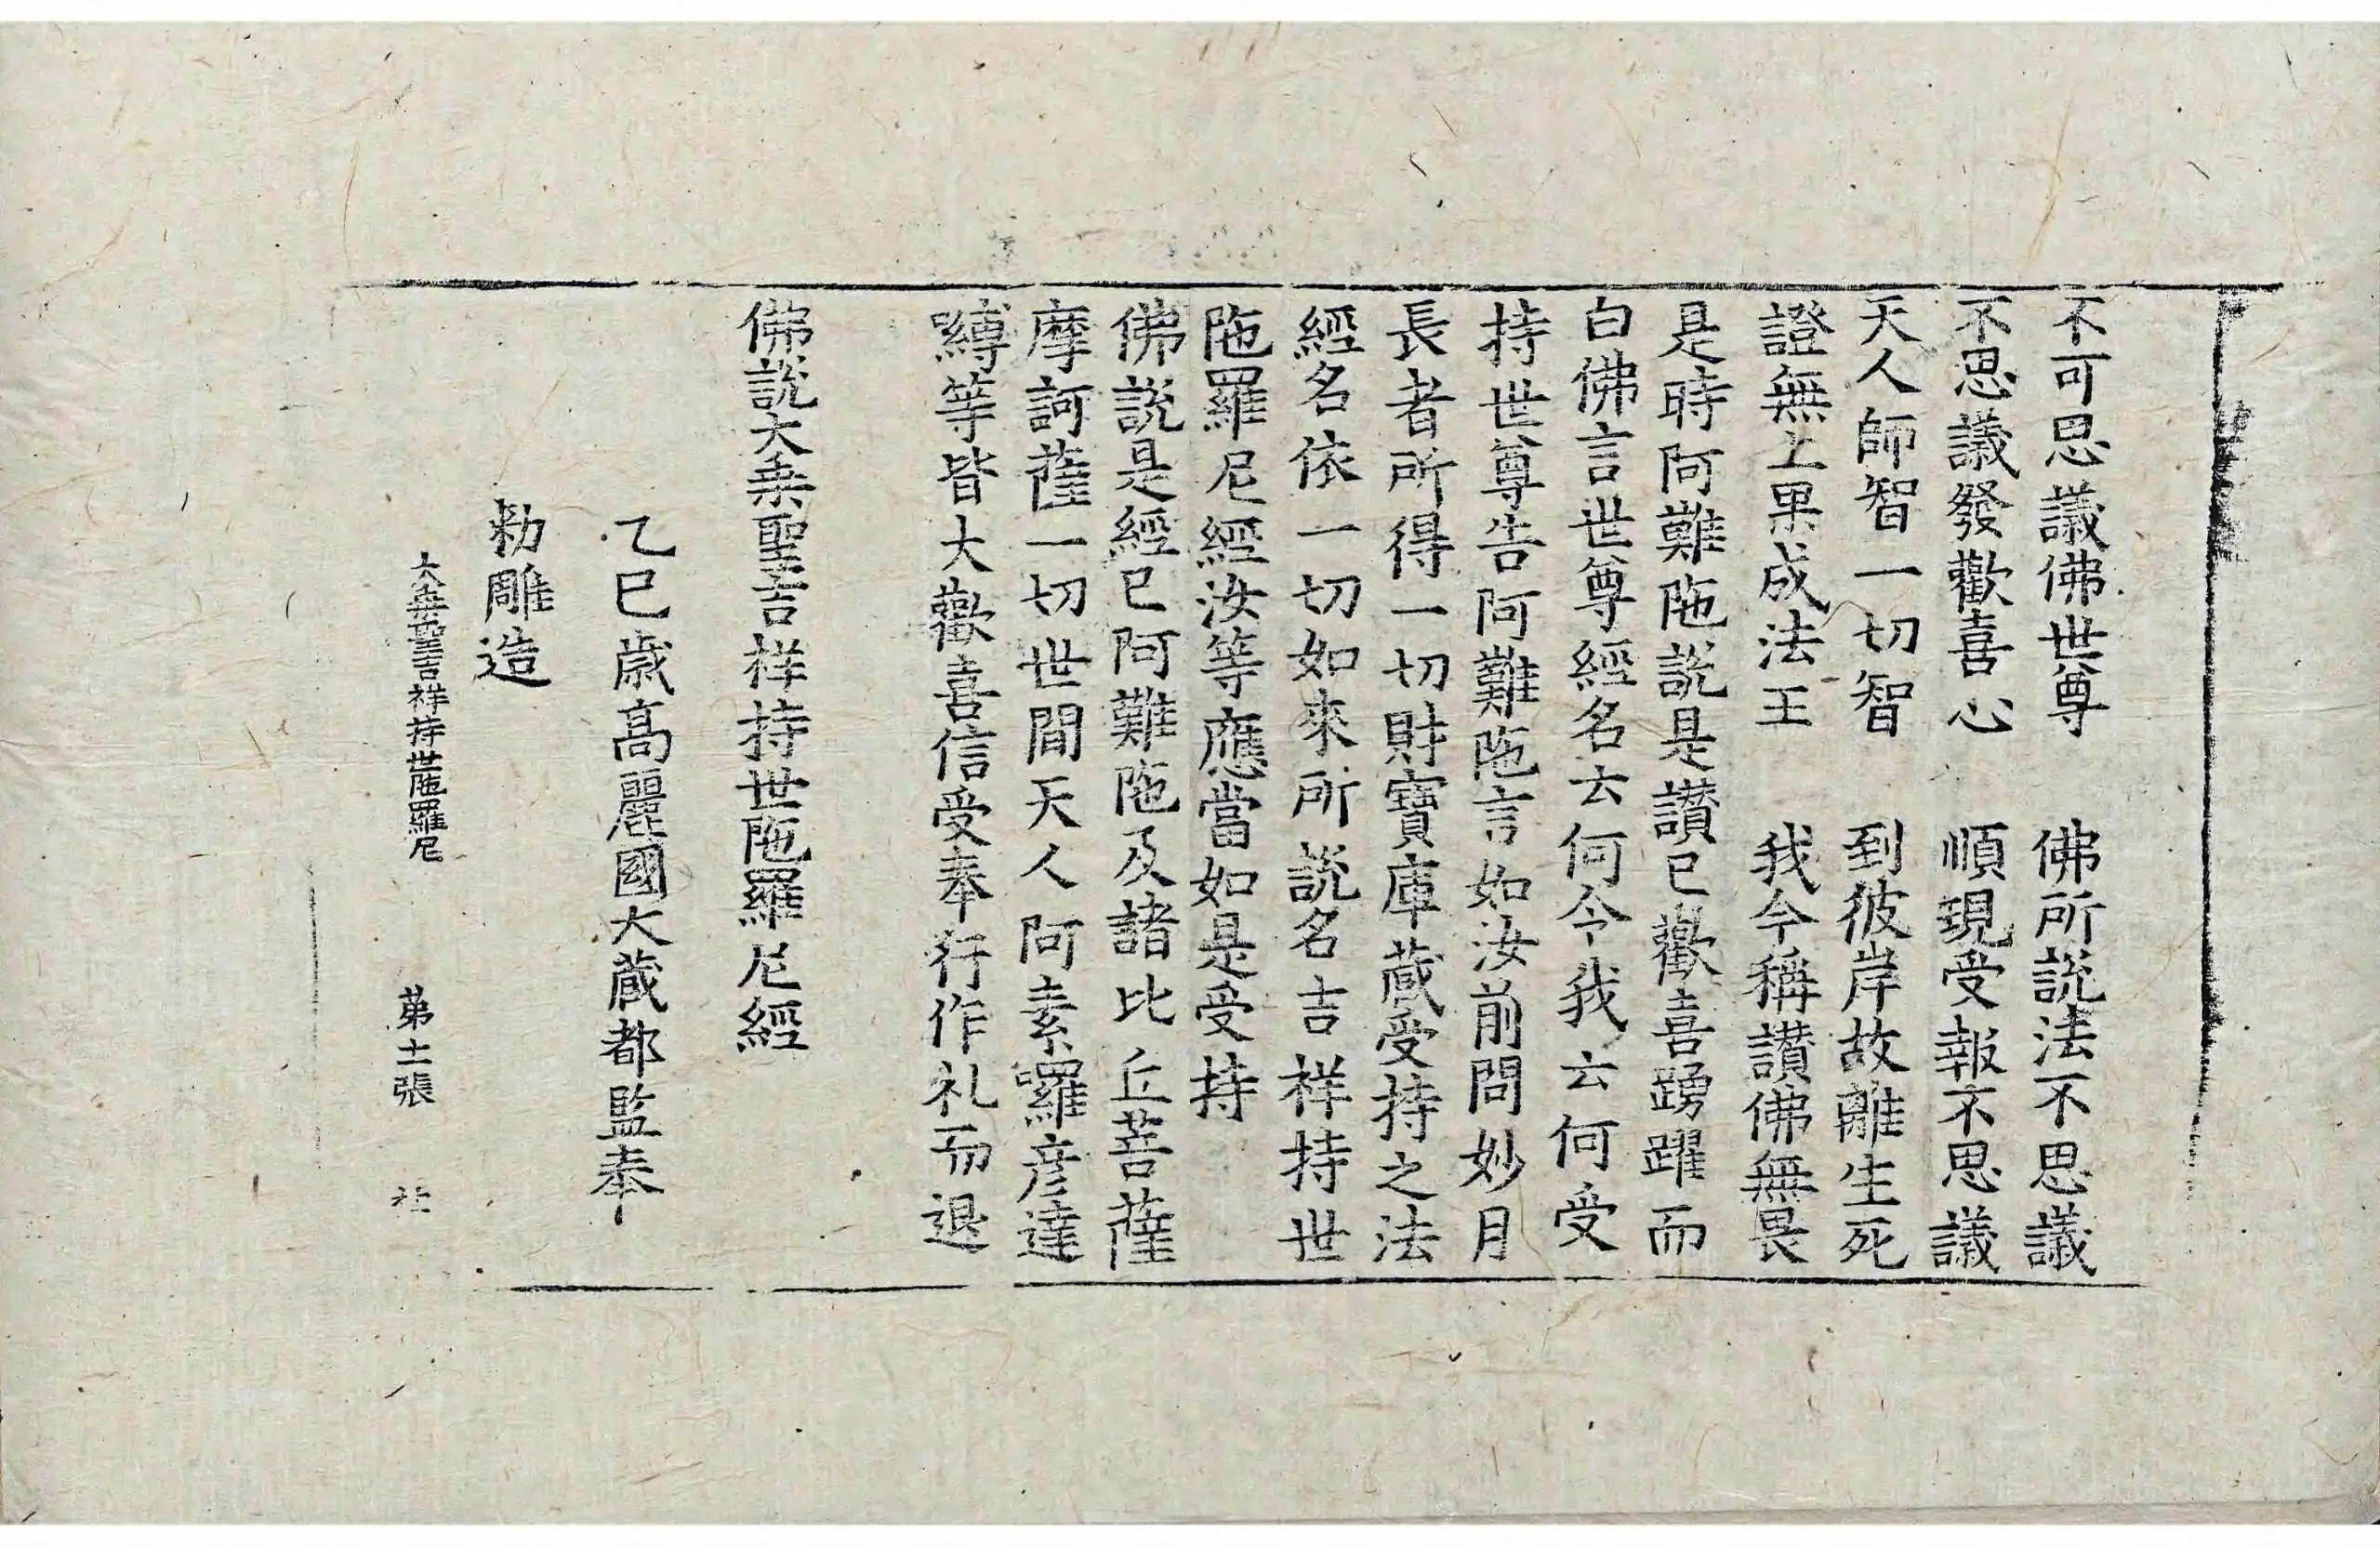 不可思議佛世尊　佛所說法不思議
不思議發歡喜心　順現受報不思議
天人師智一切智　到彼岸故離生死
證無上果成法王　我今稱讃佛無畏
是時阿難陁說是讃已歡喜踴躍而
白佛言世尊經名云何今我云何受
持世尊告阿難陁言如汝前問妙月
長者所得一切財寶庫藏受持之法
經名依一切如來所說名吉祥持世
陁羅尼經汝等應當如是受持
佛說是經已阿難陁及諸比丘菩薩
摩訶薩一切世間天人阿素囉彦達
嚩等皆大歡喜信受奉行作礼而退
佛說大乗聖吉祥持世陁羅尼經
乙巳歲高麗國大藏都監奉
勑雕造
大乗聖吉祥持世陁羅尼　第十二張